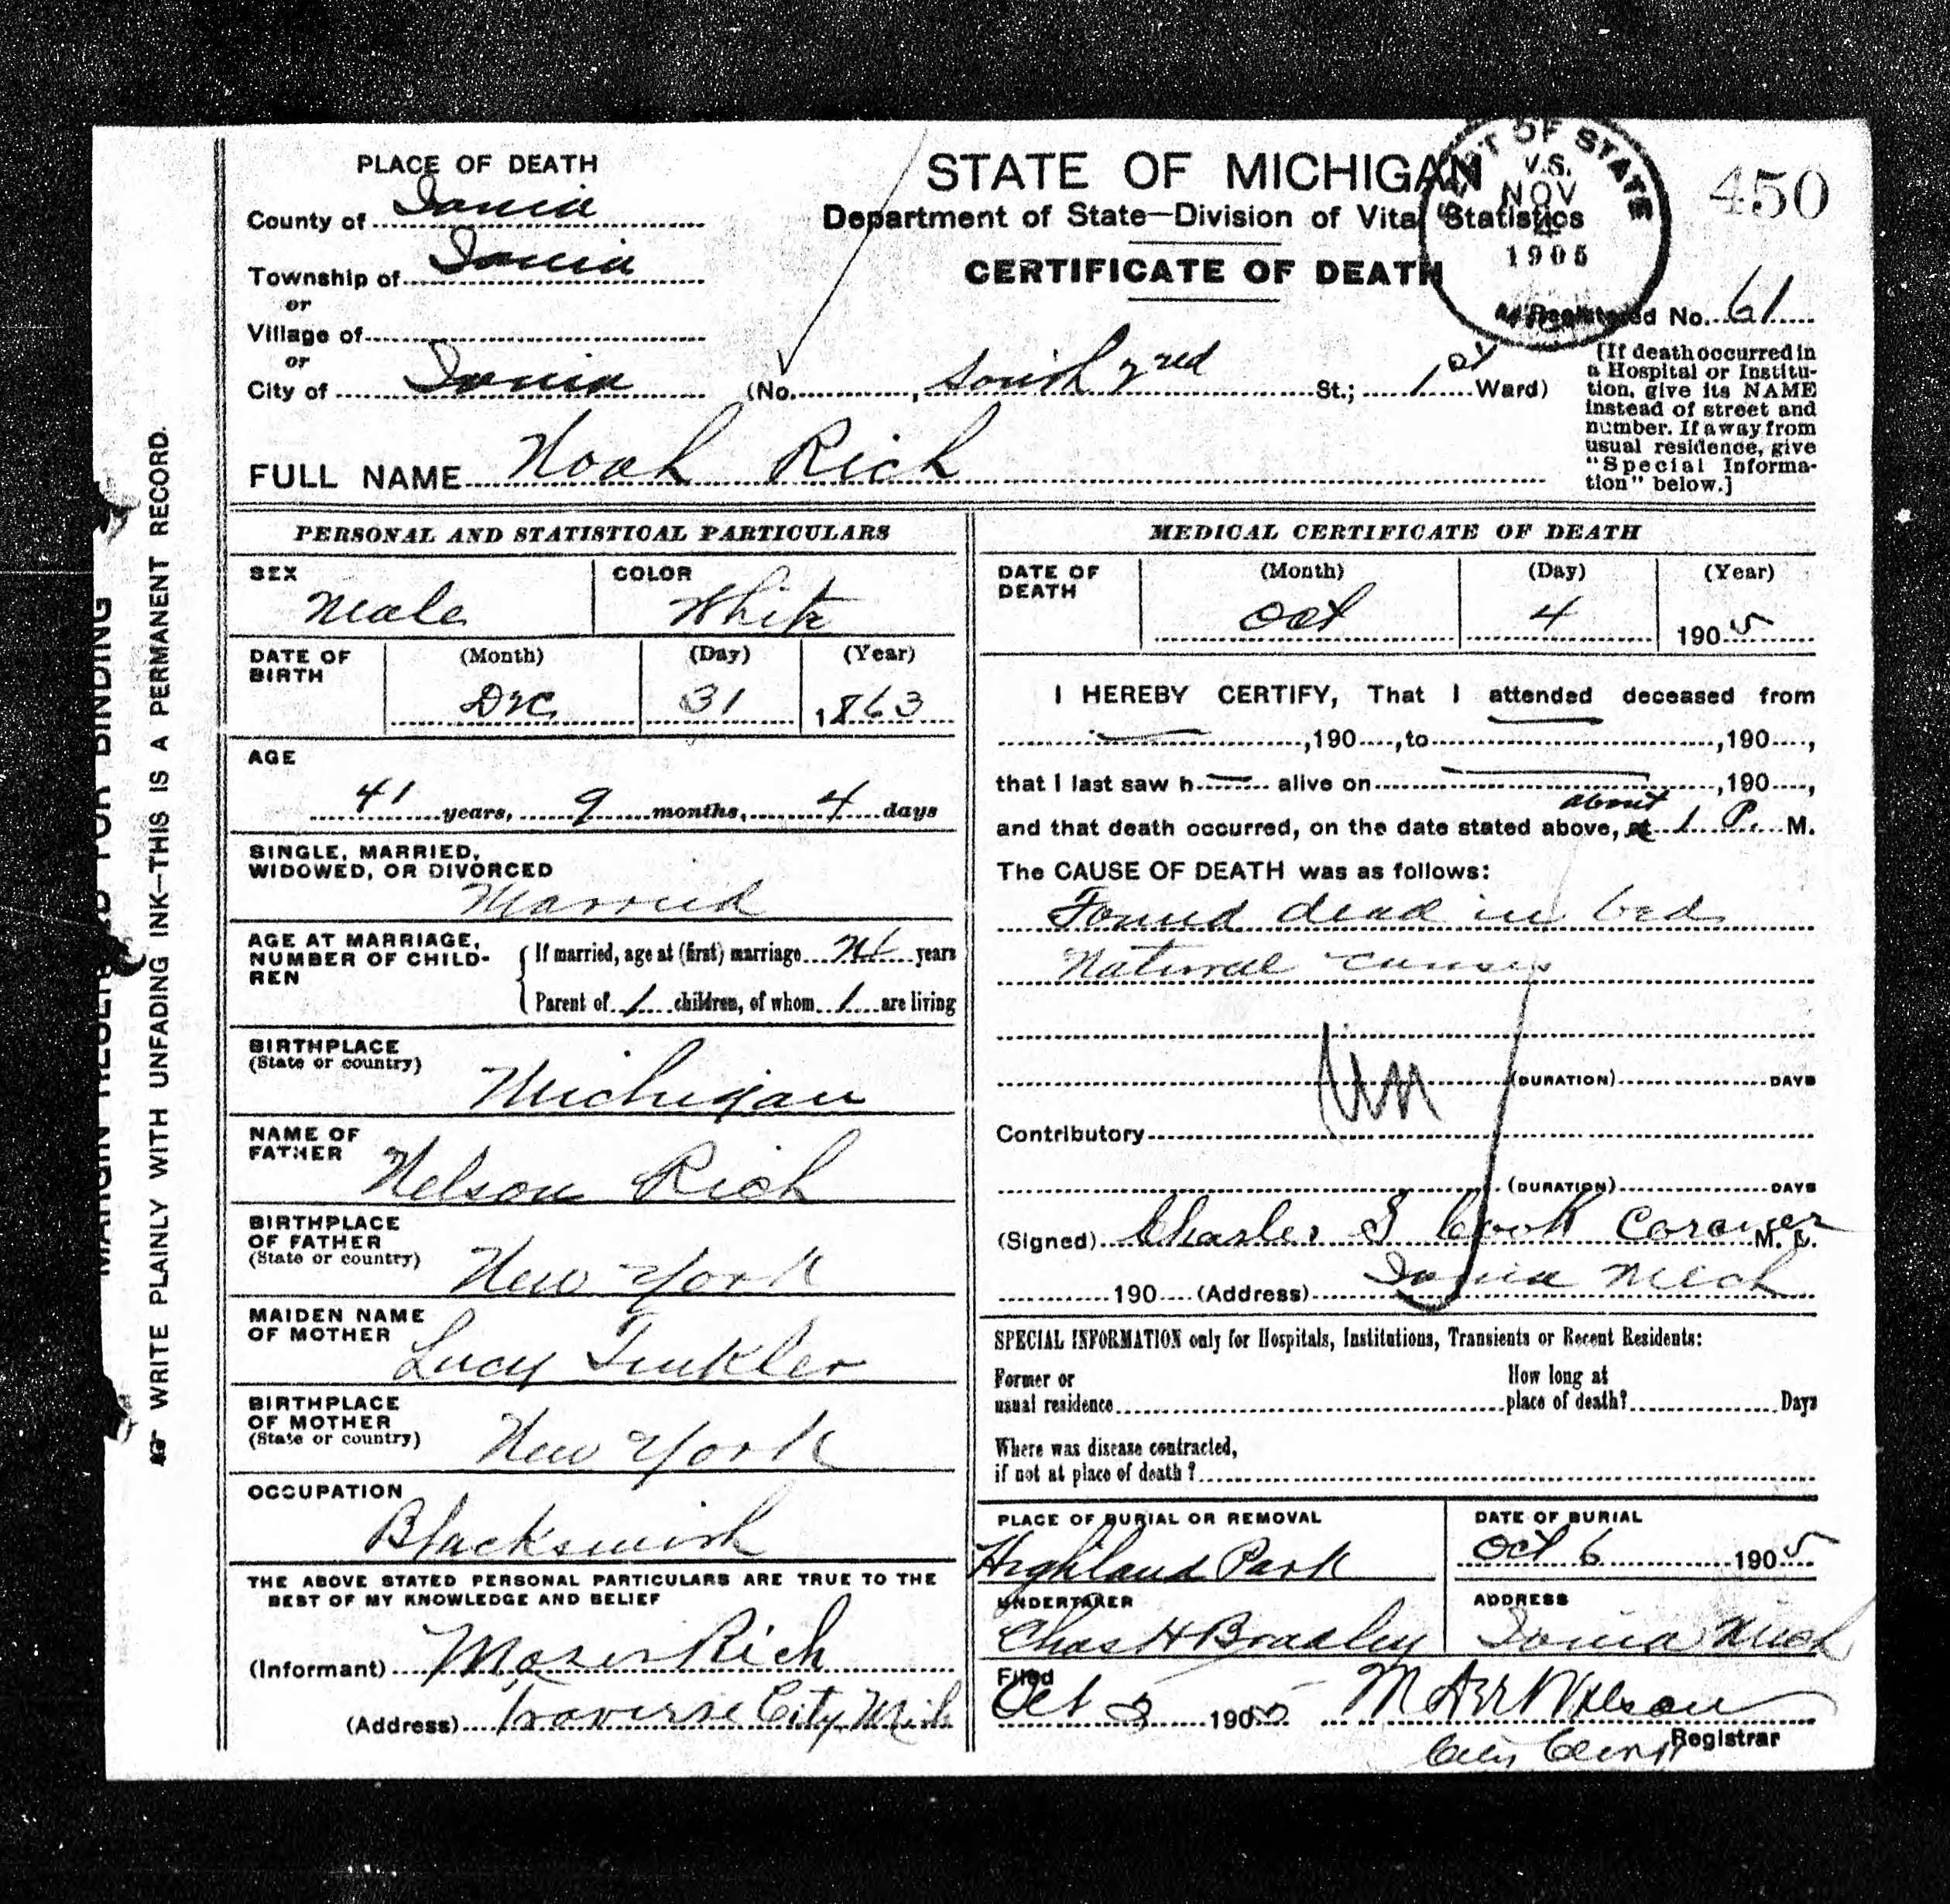 PLACE OF DEATH
County of Ionia
Township of Ionia
or
Village of
or
City of Ionia
STATE OF MICHIGAN
Department of State—Division of Vital Statistics
CERTIFICATE OF DEATH
DEPT OF STATE
V.S.
NOV
1905
MICH
450
Registered No. 61
(No. , South 2nd St.; 1st Ward)
[If death occurred in
a Hospital or Institu-
tion, give its NAME
instead of street and
number. If away from
usual residence, give
"Special Informa-
tion" below.]
FULL NAME Noah Rich
MARGIN RESERVED FOR BINDING
WRITE PLAINLY WITH UNFADING INK—THIS IS A PERMANENT RECORD.
PERSONAL AND STATISTICAL PARTICULARS
SEX Male
COLOR White
DATE OF BIRTH
(Month) (Day) (Year)
Dec 31 1863
AGE
41 years, 9 months, 4 days
SINGLE, MARRIED,
WIDOWED, OR DIVORCED
Married
AGE AT MARRIAGE,
NUMBER OF CHILD-
REN
If married, age at (first) marriage years
Parent of 1 children, of whom 1 are living
BIRTHPLACE
(State or country)
Michigan
NAME OF
FATHER
Nelson Rich
BIRTHPLACE
OF FATHER
(State or country)
New York
MAIDEN NAME
OF MOTHER
Lucy Tinkler
BIRTHPLACE
OF MOTHER
(State or country)
New York
OCCUPATION
Blacksmith
THE ABOVE STATED PERSONAL PARTICULARS ARE TRUE TO THE
BEST OF MY KNOWLEDGE AND BELIEF
(Informant) Moses Rich
(Address) Traverse City Mich
MEDICAL CERTIFICATE OF DEATH
DATE OF
DEATH
(Month) (Day) (Year)
Oct 4 1905
I HEREBY CERTIFY, That I attended deceased from
,190 ,to ,190 ,
that I last saw h alive on ,190 ,
and that death occurred, on the date stated above, at about 1 P. M.
The CAUSE OF DEATH was as follows:
Found dead in bed
Natural causes
(DURATION) DAYS
Contributory
(DURATION) DAYS
(Signed) Charles S Cook Coroner M. D.
190 (Address) Ionia Mich
SPECIAL INFORMATION only for Hospitals, Institutions, Transients or Recent Residents:
Former or
usual residence
How long at
place of death? Days
Where was disease contracted,
if not at place of death?
PLACE OF BURIAL OR REMOVAL
Highland Park
DATE OF BURIAL
Oct 6 1905
UNDERTAKER
Chas H Bradley
ADDRESS
Ionia Mich
Filed
Oct 5 1905 Wilson
City Clerk Registrar